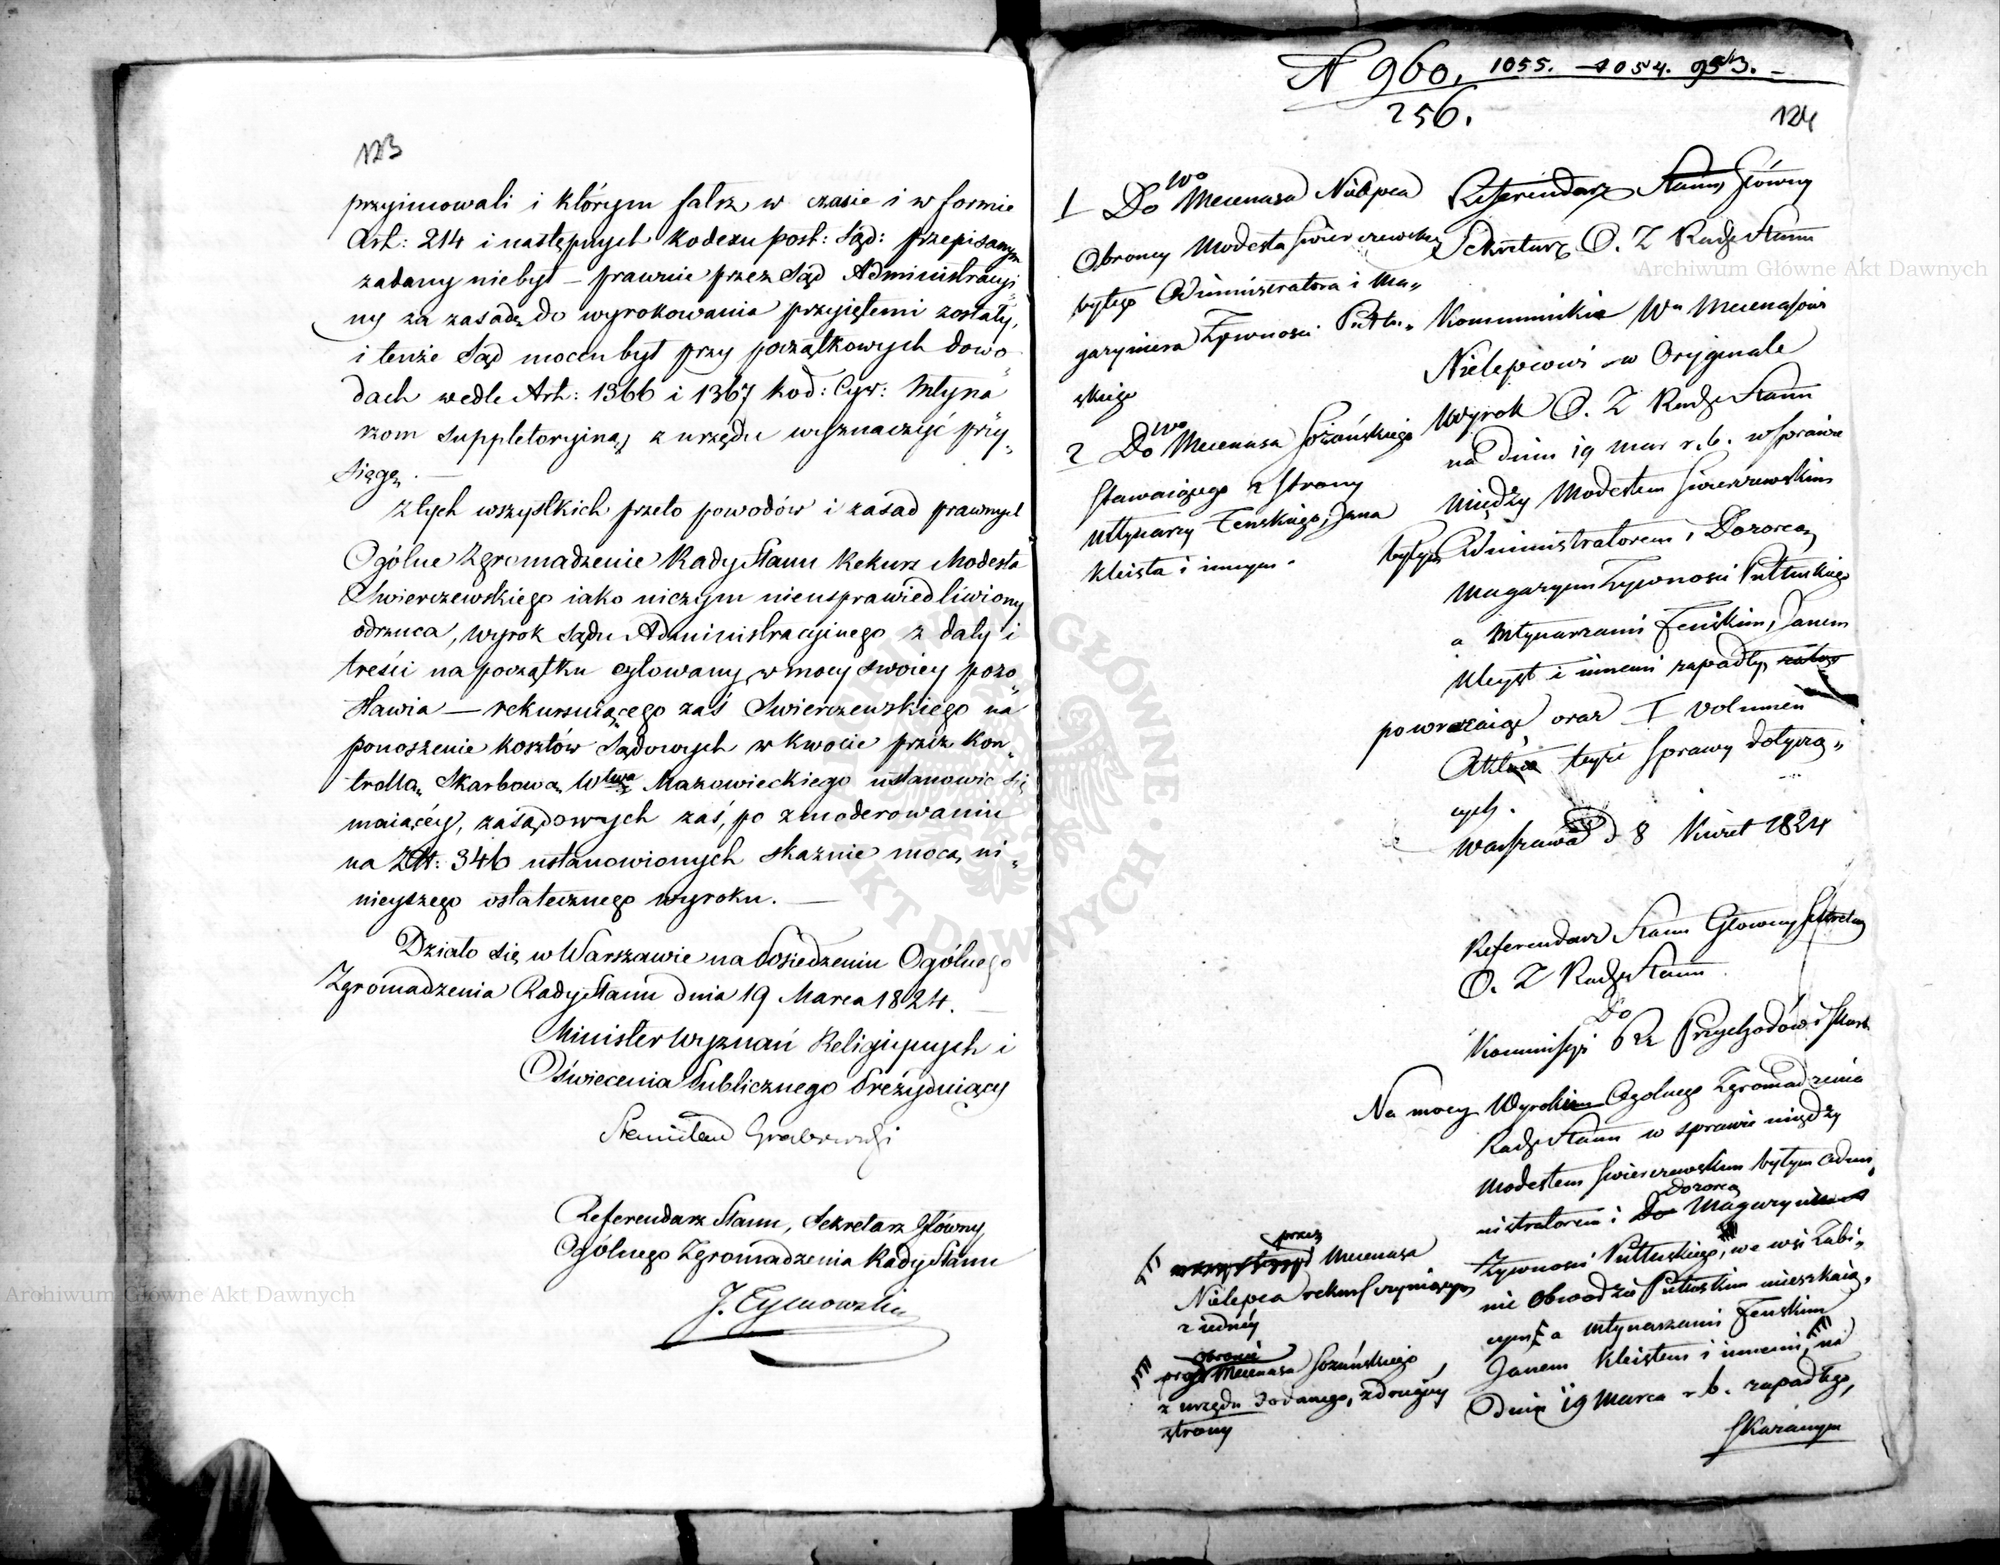 123
przyimowali i którym fałsz w czasie i w formie
Art: 214 i następnych kodexu post: Sąd: przepisanym
zadany niebył — prawnie przez Sąd Administracyi„
ny za zasadę do wyrokowania przyiętemi zostały,
i tenże Sąd mocen był przy początkowych dowo„
dach wedle Art: 1366 i 1367 kod: Cyw: Młyna„
rzom suppletoryiną z urzędu wyznaczyć przy„
sięgę. —
Z tych wszystkich przeto powodów i zasad prawnych
Ogólne Zgromadzenie Rady Stanu Rekurs Modesta
Swierczewskiego iako niczym nieusprawiedliwiony
odrzuca, wyrok Sądu Administracyinego z daty i
treści na początku cytowany w mocy swoiey pozo„
stawia — rekursuiącego zaś Swierczewskiego na
ponoszenie kosztów Sądowych w kwocie przez Kon„
trollą Skarbową Wtwa Mazowieckiego ustanowić się
maiącey, zasądowych zaś, po zmoderowaniu
na Zł: 346 ustanowionych skaznie mocą ni„
nieyszego ostatecznego wyroku. —
Działo się w Warszawie na Posiedzeniu Ogólnego
Zgromadzenia Rady Stanu dnia 19 Marca 1824.
Minister Wyznań Religiynych i
Oświecenia Publicznego Prezyduiący
Stanisław Grabowski
Referendarz Stanu, Sekretarz Główny
Ogólnego Zgromadzenia Rady Stanu
J. Tymowski
N 960. 1055. 1054. 953. —
256.
124
1 Do Wo Mecenasa Nielepca
Obrońcy Modesta Swierczewskiego
byłego Administratora i Ma„
gazyniera Żywności Pułtu„
skiego
2 Do Wo Mecenasa Łożańskiego
stawaiącego z strony
młynarzy Fenskiego, Jana
Kleista i innych.
Referendarz Stanu Główny
Sekretarz O. Z Rady Stanu
Kommunikuie Wu Mecenasowi
Nielepcowi w Oryginale
Wyrok O. Z Rady Stanu
na dniu 19 mar r. b. w sprawie
między Modestem Swierczewskim
byłym Administratorem i Dozorcą
Magazynu Żywności Pułtuskiego
a Młynarzami Fenskim, Janem
Kleyst i innemi zapadły
powracaiąc oraz I volumen
Aktów teyże sprawy dotyczą„
cych.
Warszawa d 8 Kwiet 1824
Referendarz Stanu Główny Sekretarz
O. Z Rady Stanu
Do
Kommissyi Rz Przychodów i Skarb
Na mocy Wyroku Ogolnego Zgromadzenia
Rady Stanu w sprawie między
Modestem Swierczewskim byłym Admi„
nistratorem i Dozorcą Magazynu
Żywności Pułtuskiego, we wsi Zabi„
nie Obwodzie Pułtuskim mieszkaią„
cym a młynarzami Fenskim
Janem Kleistem i innemi, na
Dniu 19 Marca r. b. zapadłego,
skazanym
przez Mecenasa
Nielepca rekurs czyniącym
z iedney
przez obronę Mecenasa Łożańskiego,
z urzędu dodanego, z drugiey
strony
Archiwum Główne Akt Dawnych
Archiwum Główne Akt Dawnych
ARCHIWUM GŁÓWNE AKT DAWNYCH